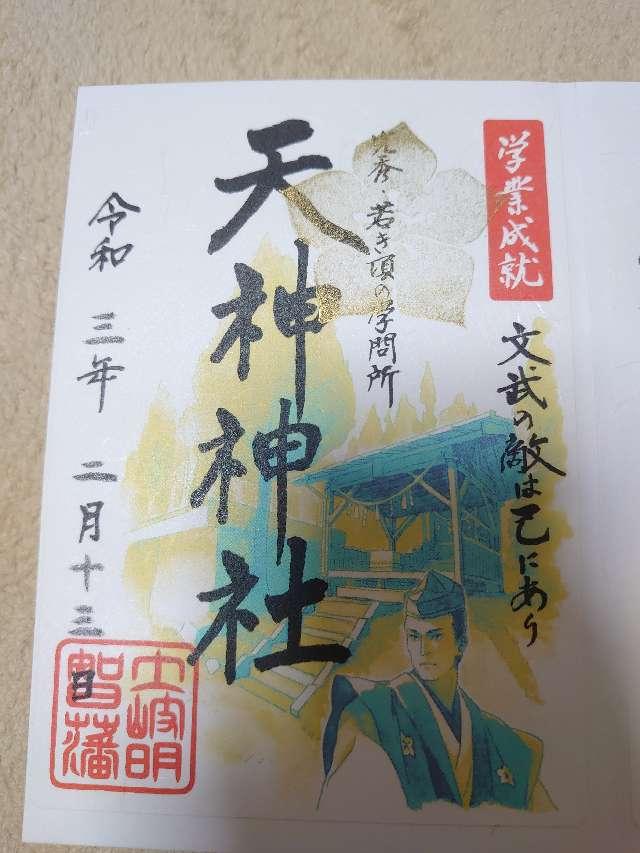 学業成就
文武の敵は己にあり
光秀・若き頃の学問所
天神神社
令和 三年 二月十三日
土岐明
智藩